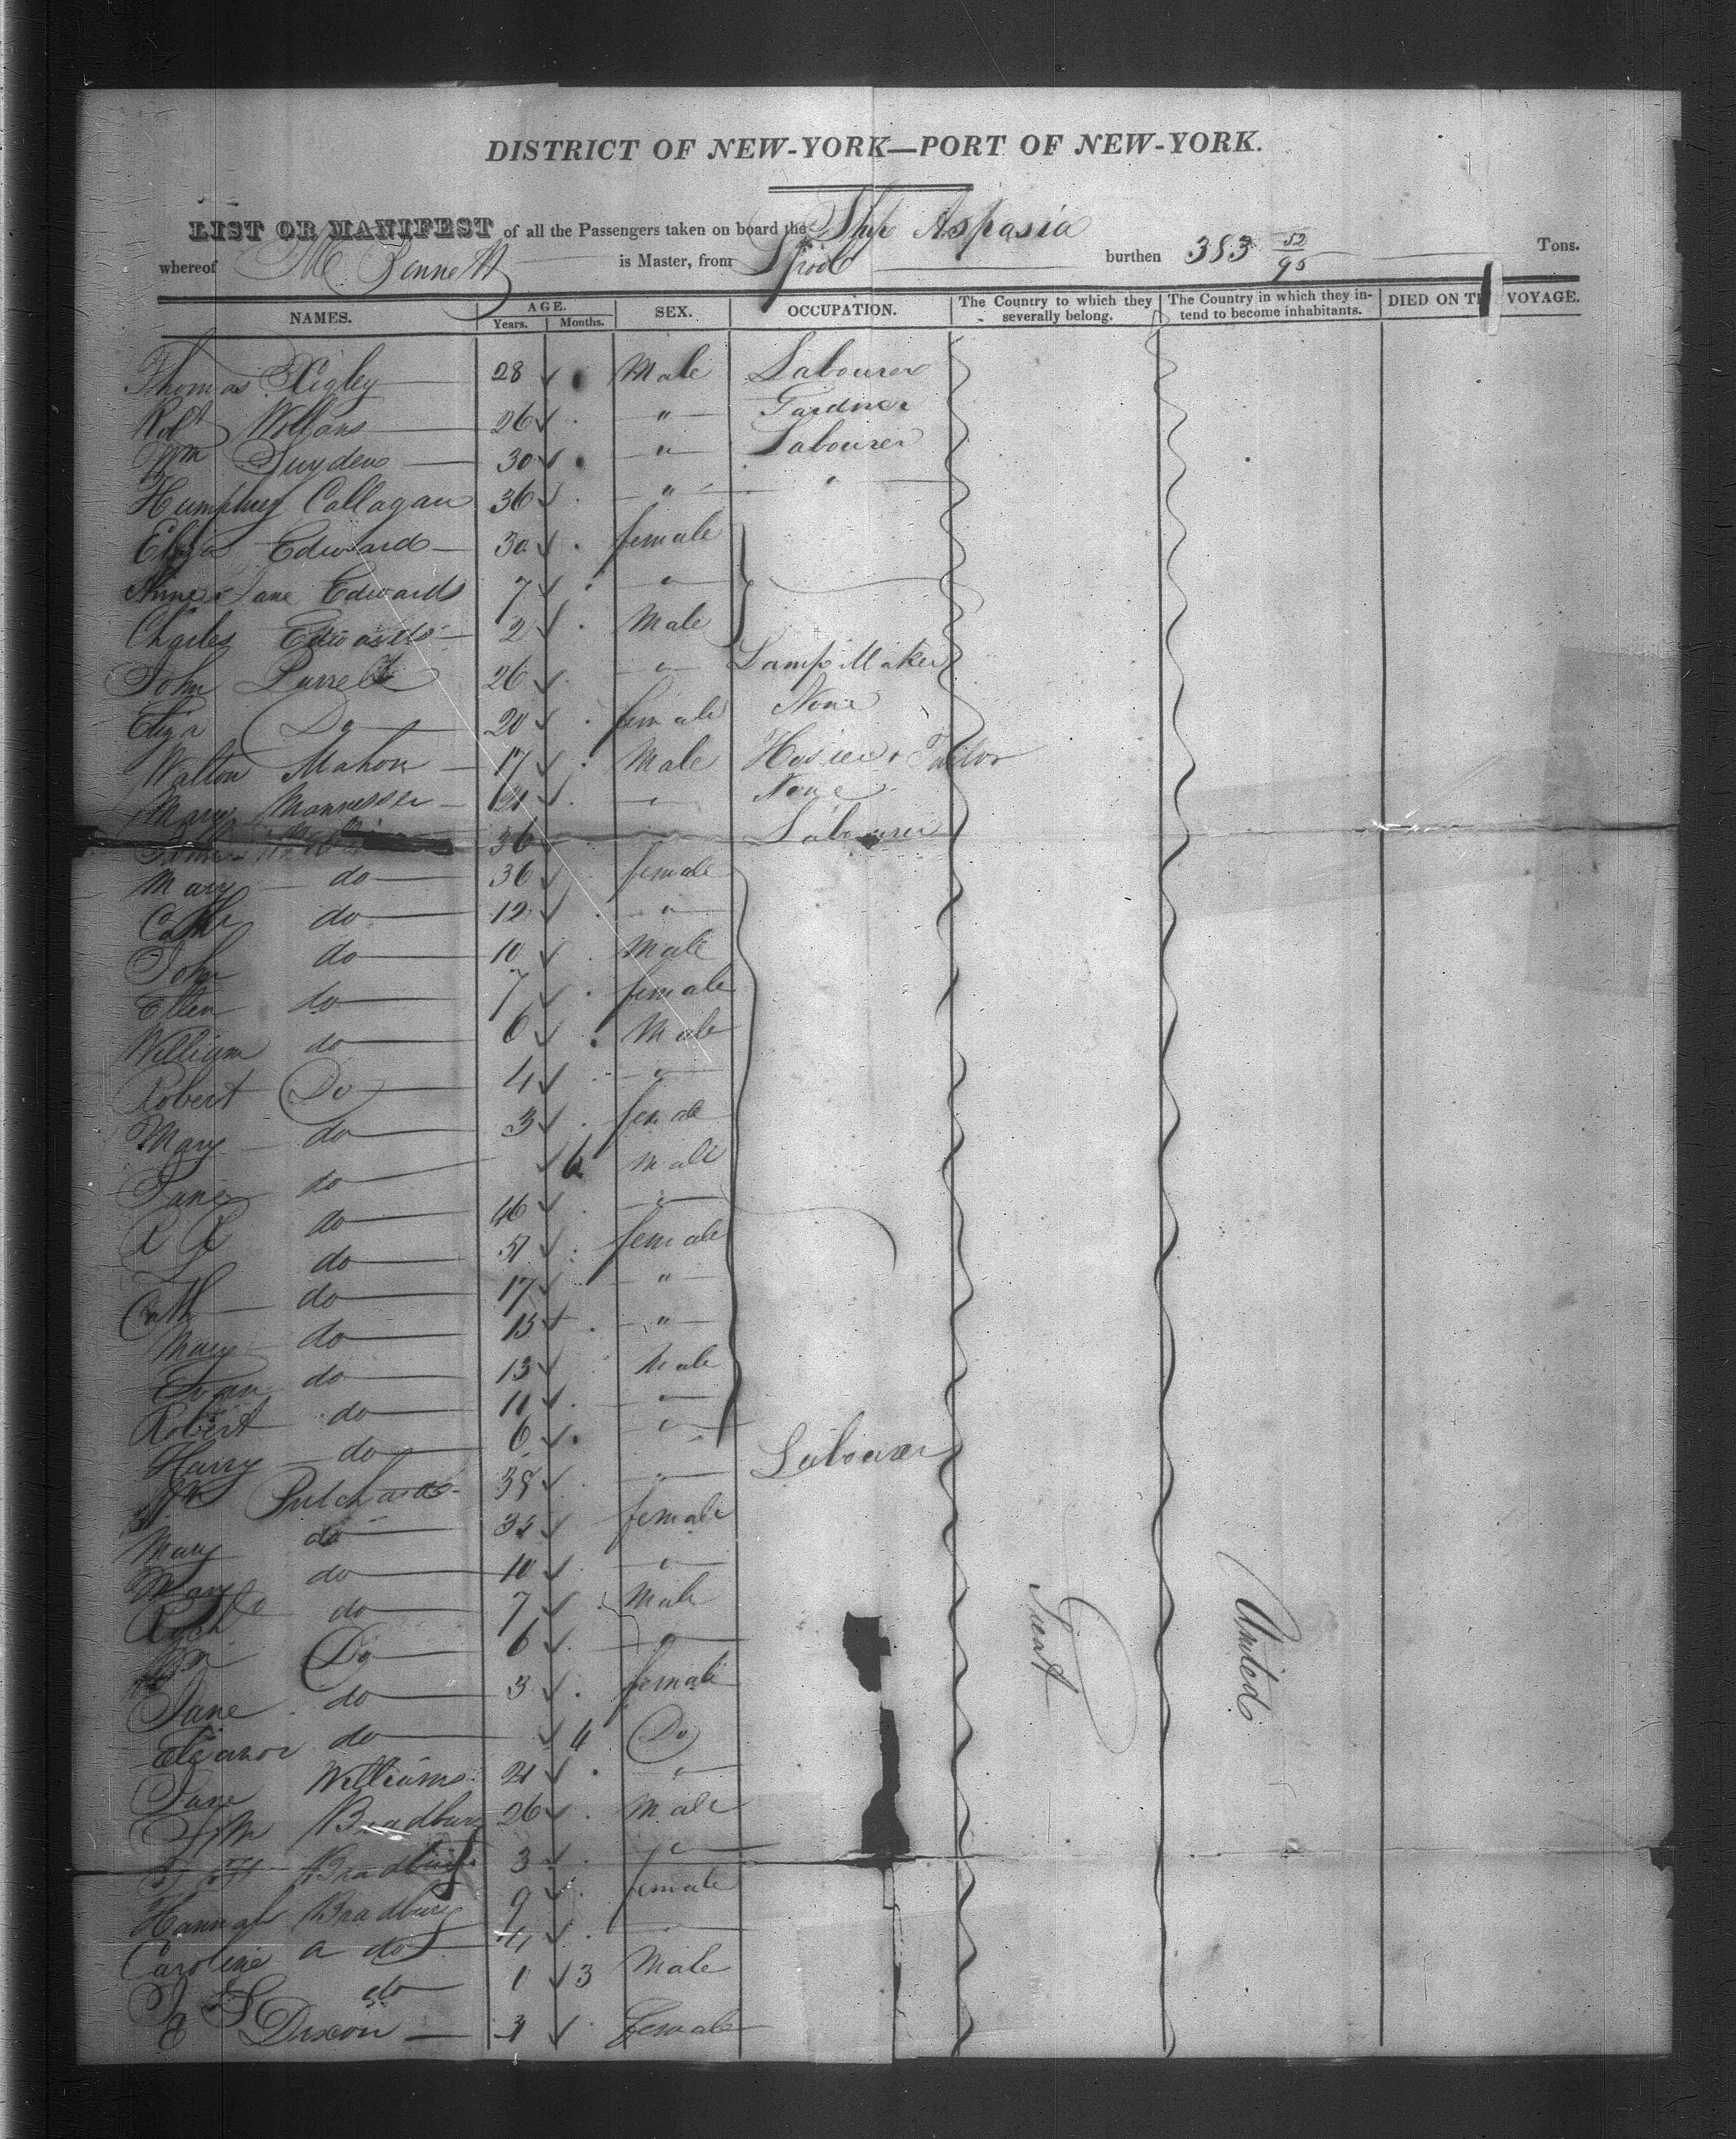 DISTRICT OF NEW-YORK—PORT OF NEW-YORK.
LIST OR MANIFEST of all the Passengers taken on board the Ship Aspasia burthen 383 52/95 Tons.
whereof M Bennett is Master, from Lpool
NAMES. AGE. Years. Months. SEX. OCCUPATION. The Country to which they severally belong. The Country in which they intend to become inhabitants. DIED ON TH VOYAGE.
Thomas Rigley 28 Male Labourer
Robt 26 " Gardner
Wm Suyden 30 " Labourer
Humphrey Callagan 36 " "
Eliza Edward 30 female
Anne Jane Edwards 7 "
Charles Edwards 2 Male
John 26 " Lamp Maker
Eliza Do 20 female None
Walton Mahon 17 Male Hosier + Tailor
Mary 21 " None
36 Labourer
Mary do 36 female
Cath do 12 "
John do 10 Male
Ellen do 7 female
William do 6 Male
Robert Do 4 "
Mary do 3 female
do 6 Male
do 46 "
do 51 female
Cath do 17 "
Mary do 15 "
Evan do 13 Male
Robert do 11 "
Harry do 6 "
Wm 38 " Labourer
Mary do 35 female
Mary do 10 "
do 7 Male
Wm Do 6 "
Jane do 3 female
Eleanor do 4 Do
Jane Williams 21 "
Bradbury 26 Male
Bradbury 3 "
Hannah Bradbury 9 female
Caroline a do 4 "
do 1 3 Male
E Dixon female
Great
United